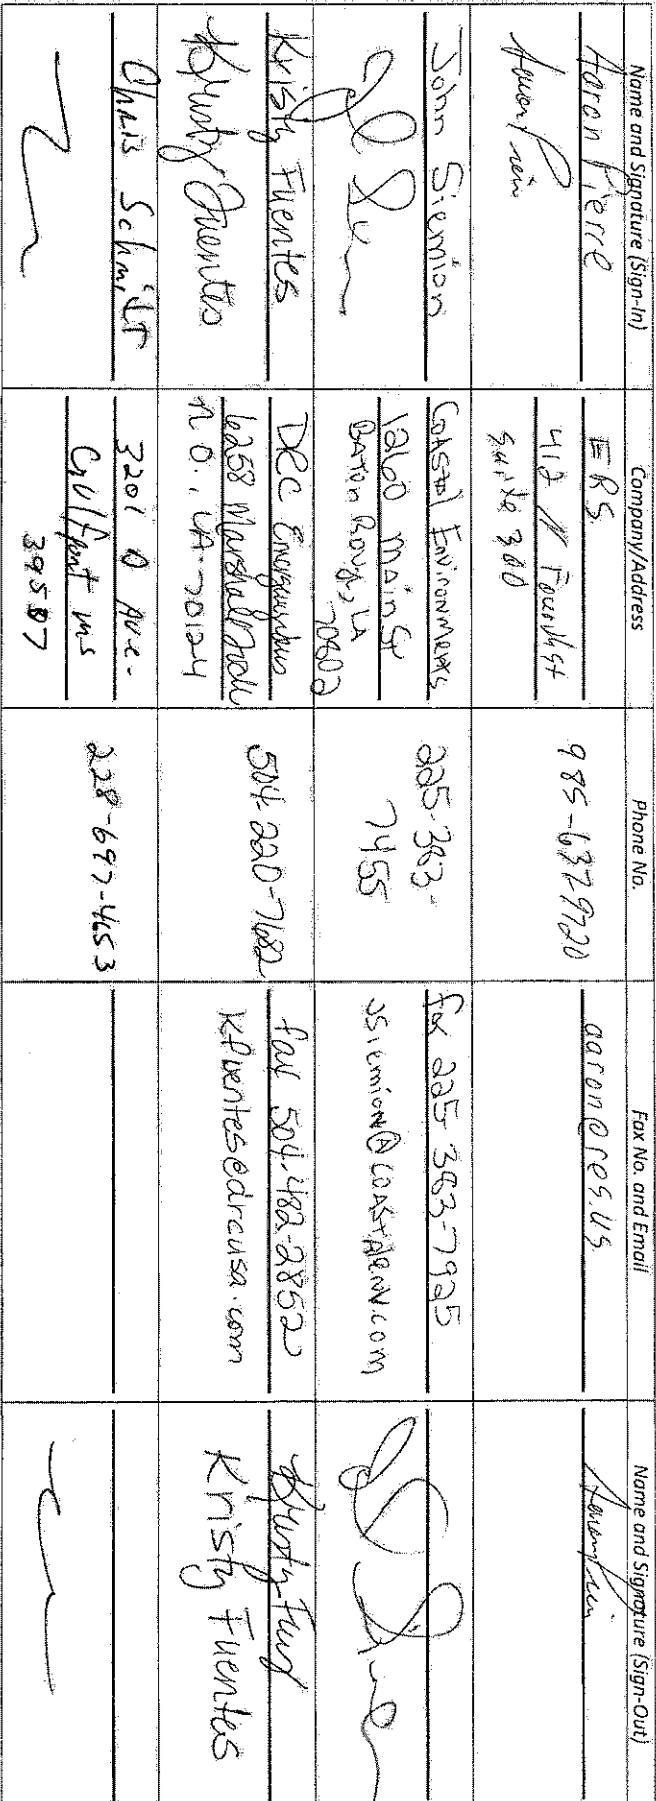 Name and Signature (Sign-In)
Company/Address
Phone No.
Fax No. and Email
Name and Signature (Sign-Out)
Aaron Pierre
ERS
412 N Fourth St
Suite 300
985-632-9720
aaron@res.us
John Siemion
Coastal Environments
1260 Main St
Baton Rouge, LA
70802
225-383-
7455
fax 225 383-7925
jsiemion@coastalenv.com
Kristy Fuentes
Kristy Fuentes
DRC
6258 Marshal Foch
N.O., LA. 70124
504-220-7682
fax 504-482-2852
kfuentes@drcusa.com
Kristy Fuentes
Chris Schmidt
3201 A Ave.
Gulfport ms
39507
228-697-4653